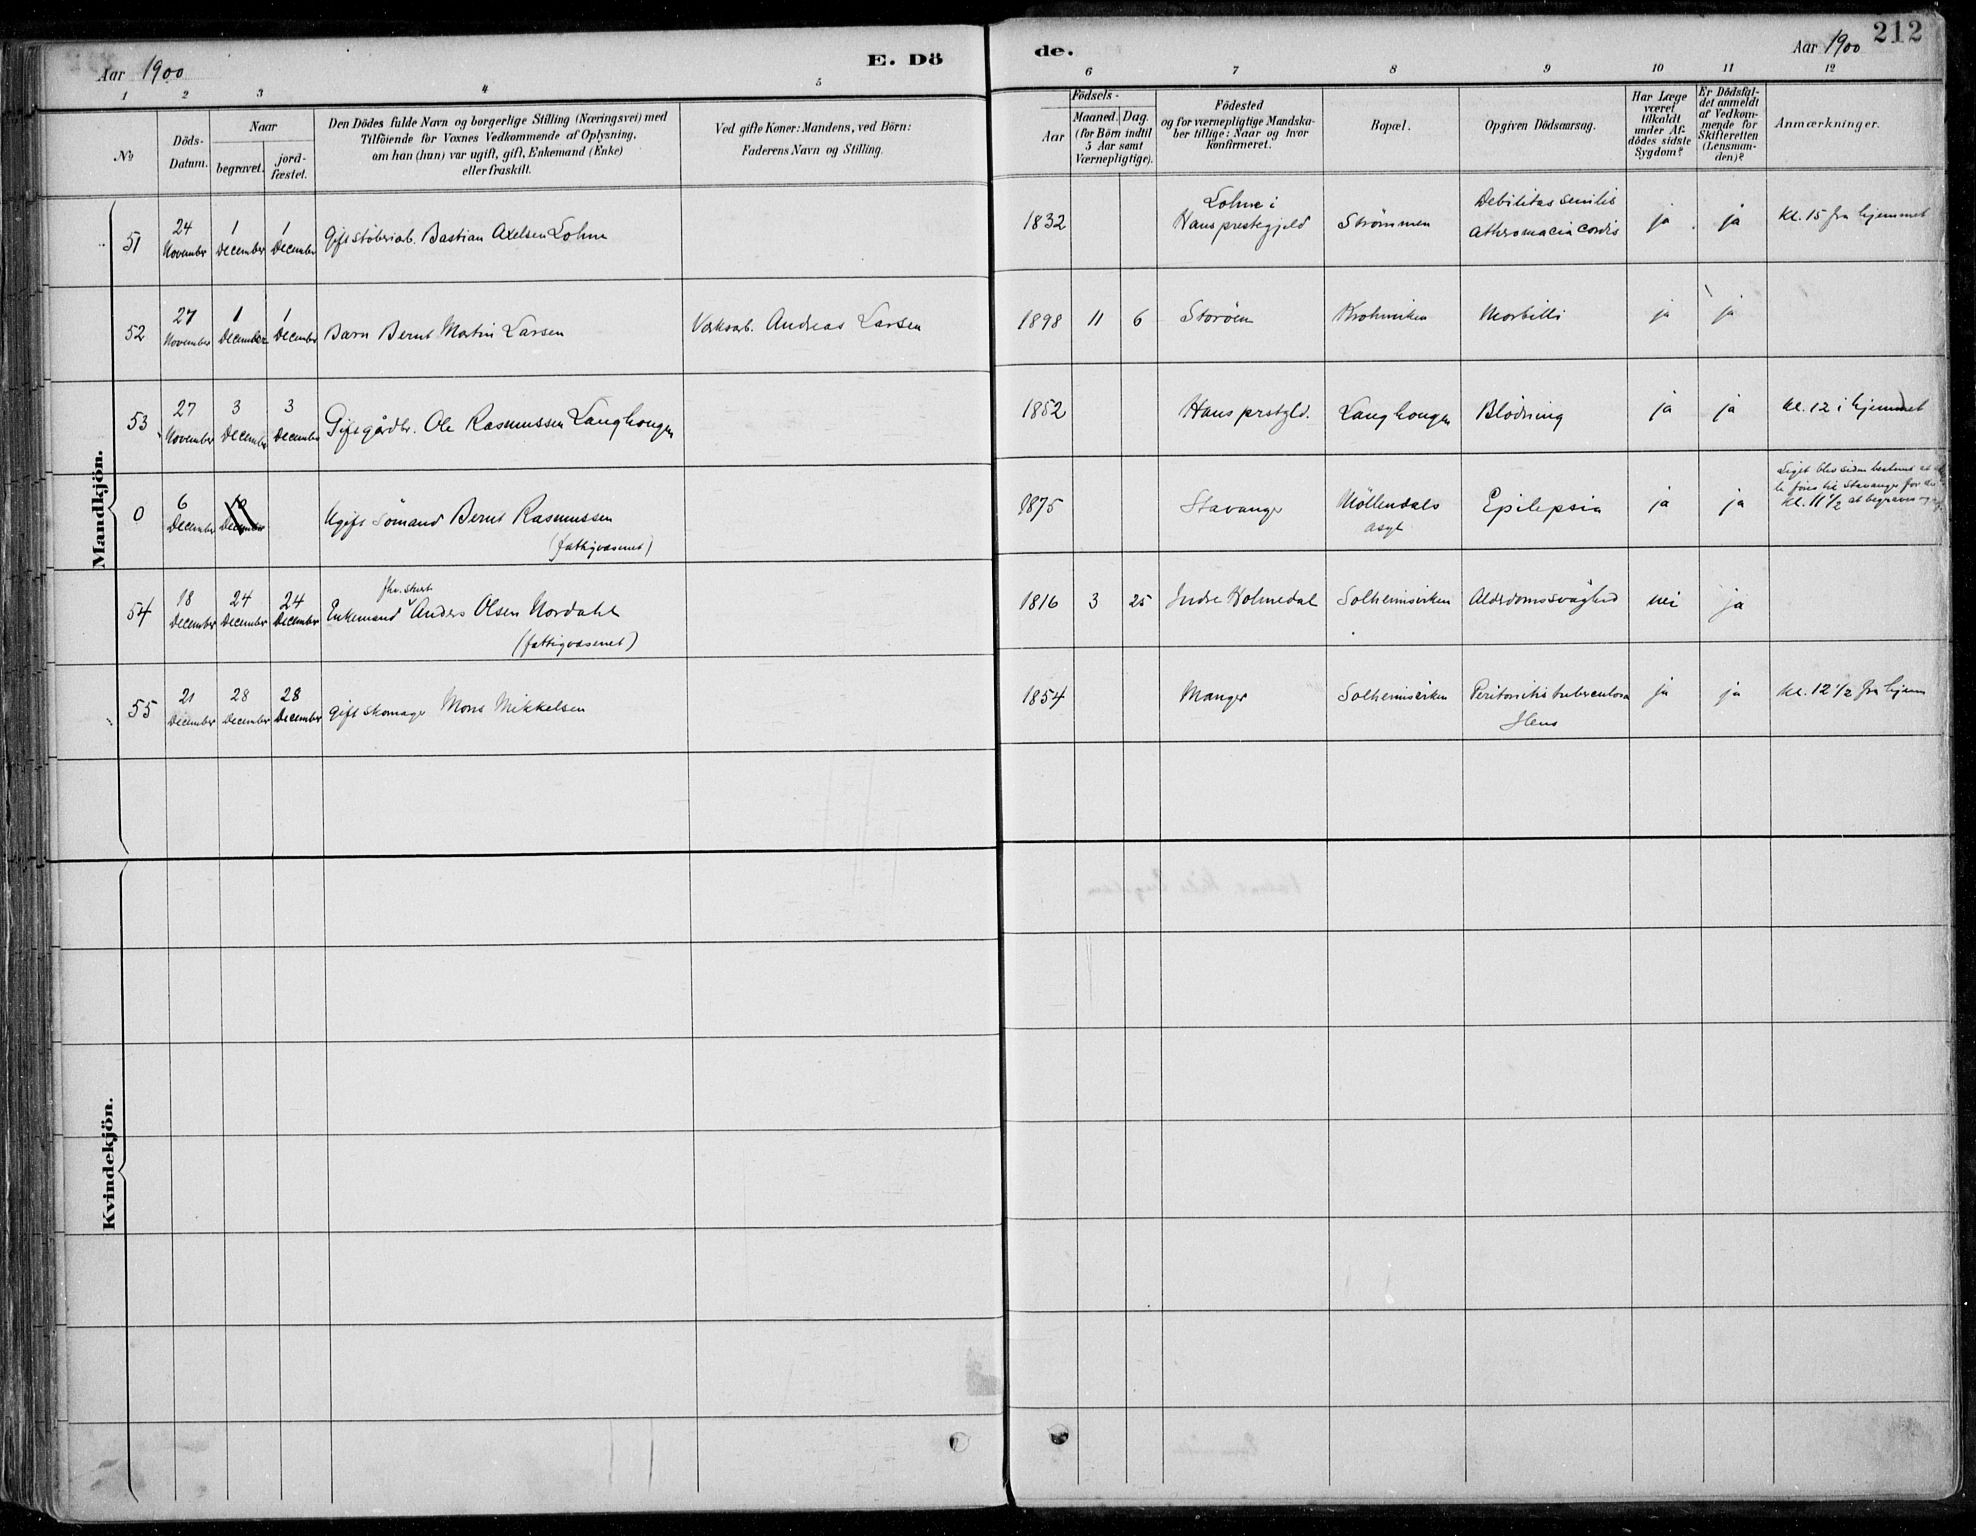 Aar 1900
E. Dö
de.
Aar 1900
212
1 2 3 4 5
6 7 8 9 10 11 12
No
Döds-
Datum.
Naar
begravet.
jord-
fæstet.
Den Dödes fulde Navn og borgerlige Stilling (Næringsvei) med
Tilföiende for Voxnes Vedkommende af Oplysning,
om han (hun) var ugift, gift, Enkemand (Enke)
eller fraskilt.
Ved gifte Koner: Mandens, ved Börn:
Faderens Navn og Stilling.
Födsels-
Aar
Maaned.
Dag.
(for Börn indtil
5 Aar samt
Værnepligtige).
Födested
og for værnepligtige Mandska-
ber tillige: Naar og hvor
Konfirmeret.
Bopæl.
Opgiven Dödsaarsag.
Har Læge
været
tilkaldt
under Af-
dödes sidste
Sygdom?
Er Dödsfal-
det anmeldt
af Vedkom-
mende for
Skifteretten
(Lensman-
den)?
Anmærkninger.
Mandkjön.
51 24 November 1 December 1 December Gift Bastian Axelsen Lohne 1832 Lohne i
Haus prestegjeld Strömmen Debilitas senilis
cordis ja ja Kl. 15 fra hjemmet
52 27 November 1 December 1 December Barn Bernt Martin Larsen Værksarb. Andreas Larsen 1898 11 6 Storöen Morbilli ja ja
53 27 November 3 December 3 December Gift gårdbr. Ole Rasmussen Langhougen 1852 Haus prstgld. Langhougen Blödning ja ja Kl. 12 i hjemmet
0 6 December December Ugift Sömand Bernt Rasmussen
(fattigvæsenet) 1875 Stavanger Möllendals
asyl Epilepsia ja ja Liget blev siden bestemt at
föres til Stavanger for
Kl. 11 1/2 at begraves
54 18 December 24 December 24 December Enkemand Anders Olsen Nordahl
(fattigvæsenet) 1816 3 25 Indre Holmedal Solheimsviken Alderdomssvaghed nei ja
55 21 December 28 December 28 December Gift skomager Mons Mikkelsen 1854 Manger Solheimsviken Peritonitis tuberculosa
Ileus ja ja Kl. 12 1/2 fra hjem
Kvindekjön.